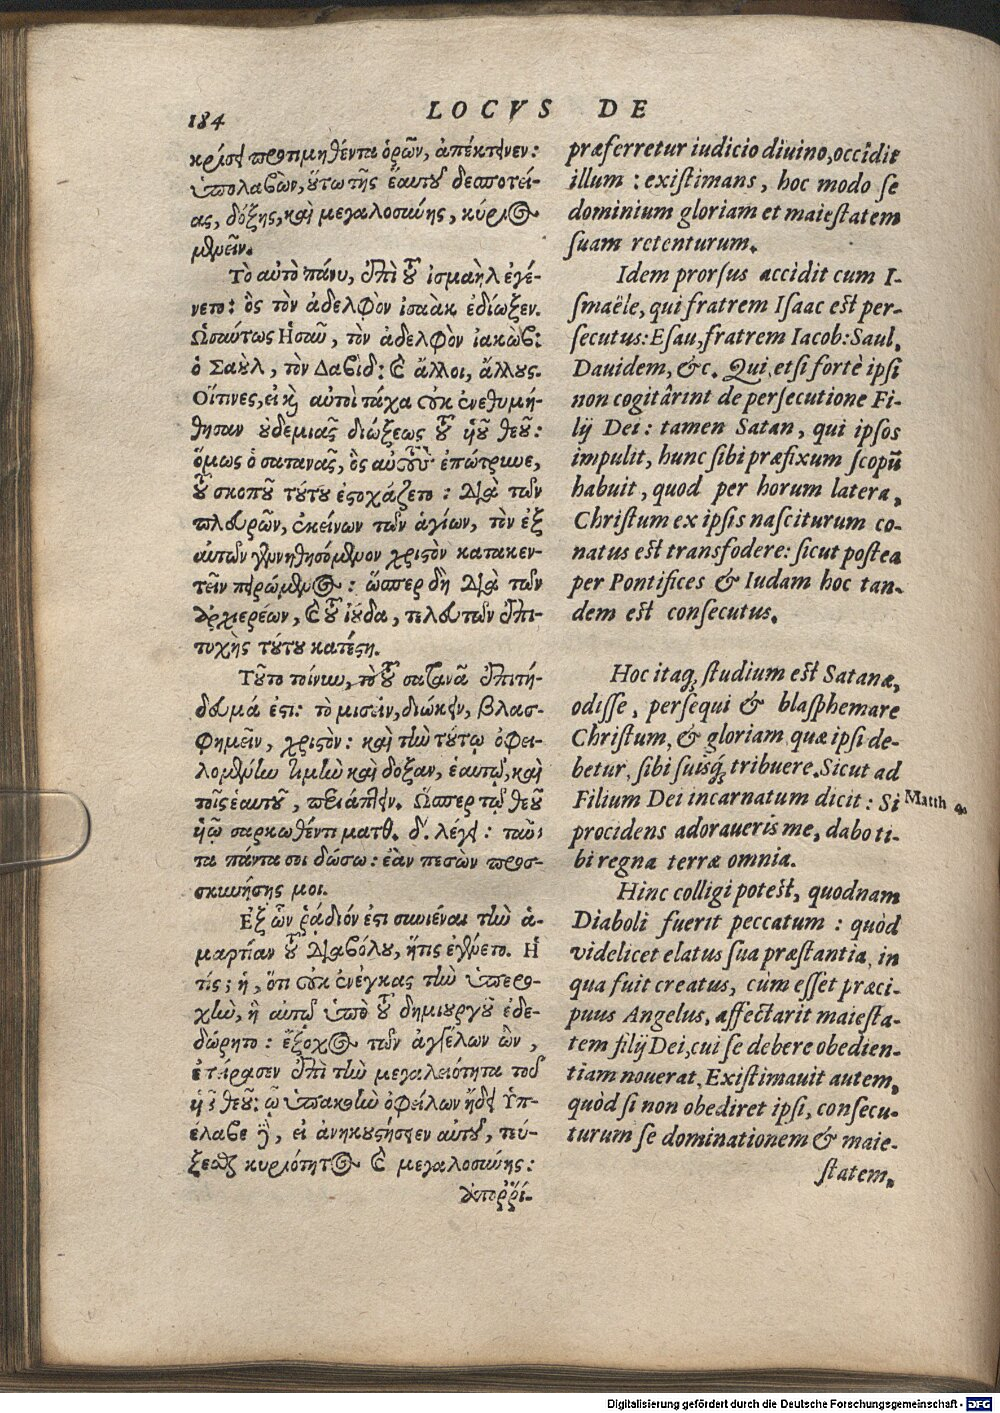 184
LOCVS DE
κρίσει προτιμηθέντα ὁρῶν, ἀπέκτεινεν:
ὑπολαβὼν, οὕτω τῆς ἑαυτοῦ δεσποτεί-
ας, δόξης, καὶ μεγαλοσύνης, κύριος
μένειν.
Τὸ αὐτὸ πάνυ, ἐπὶ τοῦ ἰσμαὴλ ἐγέ-
νετο: ὃς τὸν ἀδελφὸν ἰσαὰκ ἐδίωξεν.
Ὡσαύτως Ἠσαῦ, τὸν ἀδελφὸν ἰακὼβ:
ὁ Σαοὺλ, τὸν Δαβίδ: καὶ ἄλλοι, ἄλλους.
Οἵτινες, εἰ καὶ αὐτοὶ τάχα οὐκ ἐνεθυμή-
θησαν οὐδεμιᾶς διώξεως τοῦ ὑοῦ θεοῦ:
ὅμως ὁ σατανᾶς, ὃς αὐτοὺς ἐπώτρυνε,
τοῦ σκοποῦ τούτου ἐστοχάζετο: διὰ τῶν
πλευρῶν, ἐκείνων τῶν ἁγίων, τὸν ἐξ
αὐτῶν γεννηθησόμενον χριστὸν κατακεν-
τεῖν πειρώμενος: ὥσπερ δὴ διὰ τῶν
ἀρχιερέων, καὶ τοῦ ἰούδα, τελευτῶν ἐπι-
τυχὴς τούτου κατέστη.
Τοῦτο τοίνυν, τὸ τοῦ σατανᾶ ἐπιτή-
δευμά ἐστι: τὸ μισεῖν, διώκειν, βλασ-
φημεῖν, χριστὸν: καὶ τὴν τούτῳ ὀφει-
λομένην τιμὴν καὶ δόξαν, ἑαυτῷ, καὶ
τοῖς ἑαυτοῦ, περιάπτειν. Ὥσπερ τῷ θεοῦ
ὑῷ σαρκωθέντι ματθ. δ. λέγει: ταῦ-
τα πάντα σοι δώσω: ἐὰν πεσὼν προσ-
σκυνήσῃς μοι.
Ἐξ ὧν ῥάδιόν ἐστι συνιέναι τὴν ἁ-
μαρτίαν τοῦ διαβόλου, ἥτις ἐγένετο. Ἡ
τίς; ἡ, ὅτι οὐκ ἐνέγκας τὴν ὑπερο-
χὴν, ἣ αὐτῷ ὑπὸ τοῦ δημιουργοῦ ἐδε-
δώρητο: ἔξοχος τῶν ἀγγέλων ὢν,
ἐπείρασεν ἐπὶ τὴν μεγαλειότητα τοῦ
ὑοῦ θεοῦ: ᾧ ὑπακοὴν ὀφείλων ᾔδει Ὑπ-
έλαβε γὰρ, εἰ ἀνηκουστήσειεν αὐτοῦ, τεύ-
ξεσθαι κυριότητος καὶ μεγαλοσύνης:
ἀποῤῥί-
præferretur iudicio diuino, occidit
illum : existimans, hoc modo se
dominium gloriam et maiestatem
suam retenturum.
Idem prorsus accidit cum I-
smaële, qui fratrem Isaac est per-
secutus: Esau, fratrem Iacob: Saul,
Dauidem, &c. Qui, etsi fortè ipsi
non cogitârint de persecutione Fi-
lij Dei: tamen Satan, qui ipsos
impulit, hunc sibi præfixum scopũ
habuit, quod per horum latera,
Christum ex ipsis nasciturum co-
natus est transfodere: sicut postea
per Pontifices & Iudam hoc tan-
dem est consecutus.
Hoc itaq; studium est Satanæ,
odisse, persequi & blasphemare
Christum, & gloriam quæ ipsi de-
betur, sibi suisq; tribuere. Sicut ad
Filium Dei incarnatum dicit: Si
procidens adoraueris me, dabo ti-
bi regna terræ omnia.
Hinc colligi potest, quodnam
Diaboli fuerit peccatum: quòd
videlicet elatus sua præstantia, in
qua fuit creatus, cùm esset præci-
puus Angelus, affectarit maiesta-
tem filij Dei, cui se debere obedien-
tiam nouerat, Existimauit autem,
quòd si non obediret ipsi, consecu-
turum se dominationem & maie-
statem,
Matth 4.
Digitalisierung gefördert durch die Deutsche Forschungsgemeinschaft - DFG